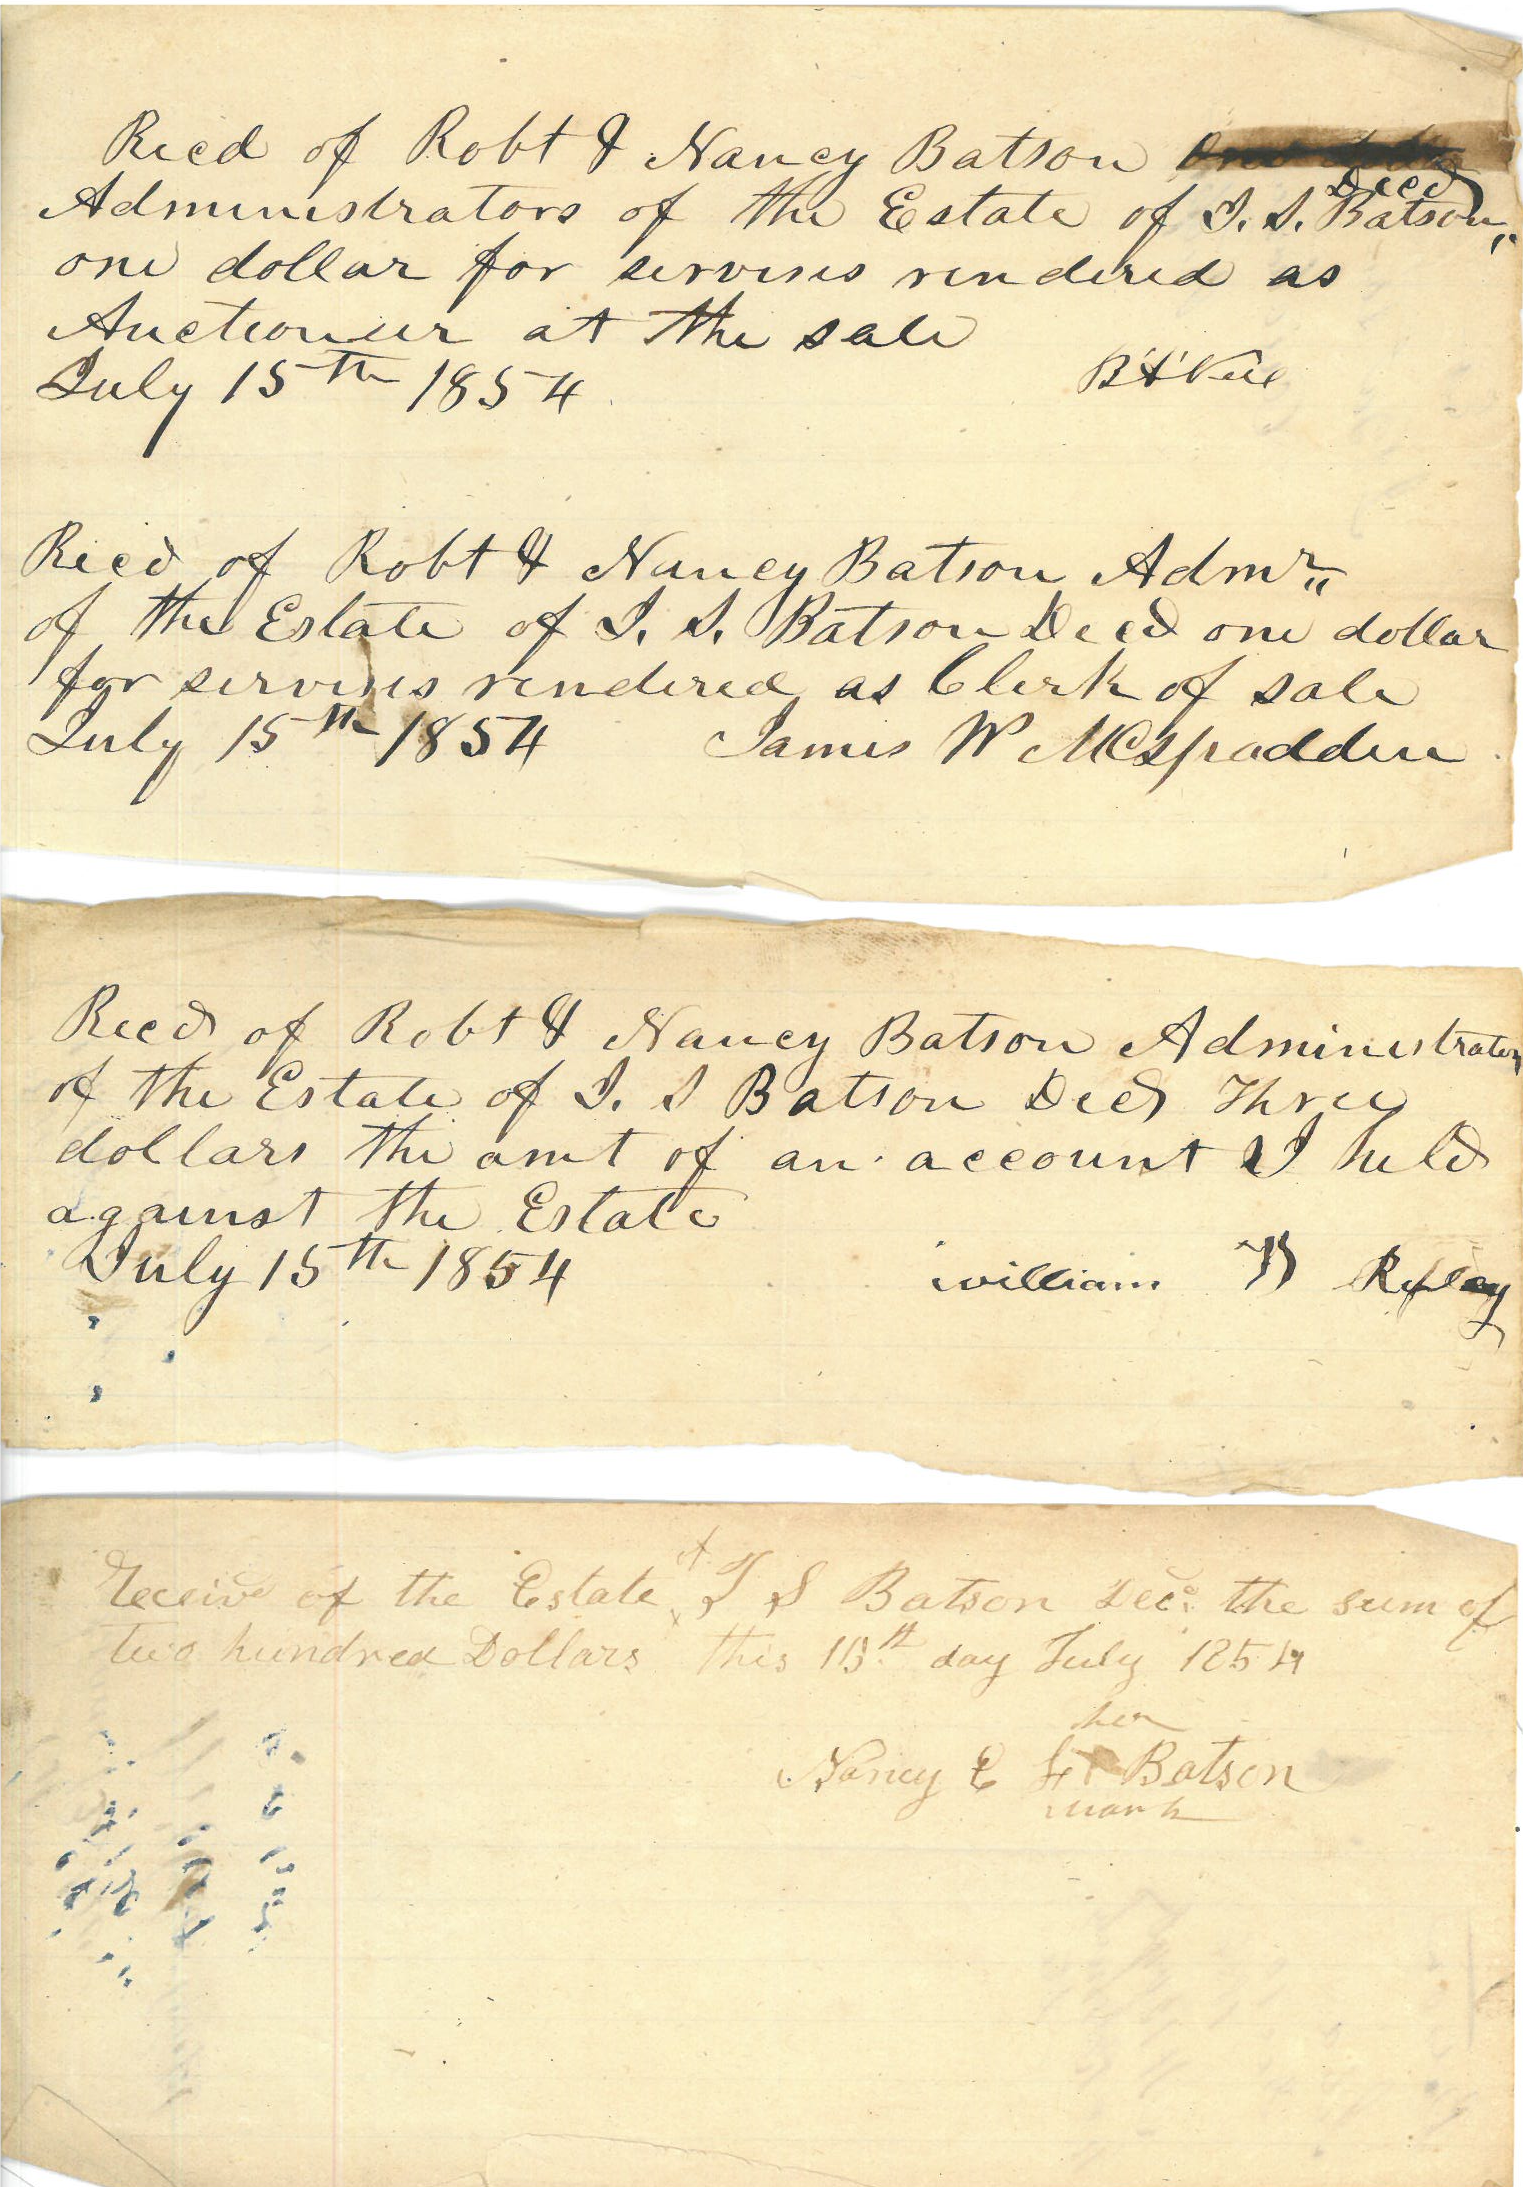 Recd of Robt & Nancy Batson
Decd
Administrators of the Estate of I. S. Batson,,
one dollar for servises rendered as
Auctioneer at the sale
July 15th 1854
Recd of Robt & Nancy Batson Admr,,
of the Estate of I. S. Batson Decd one dollar
for servises rendered as Clerk of sale
July 15th 1854 James W McSpadden
Recd of Robt & Nancy Batson Administrators
of the Estate of I. S Batson Decd Three
dollars the amt of an account I held
against the Estate
July 15th 1854 william
Receivd of the Estate of T S Batson Decd the sum of
two hundred Dollars this 15th day July 1854
her
Nancy E Batson
mark